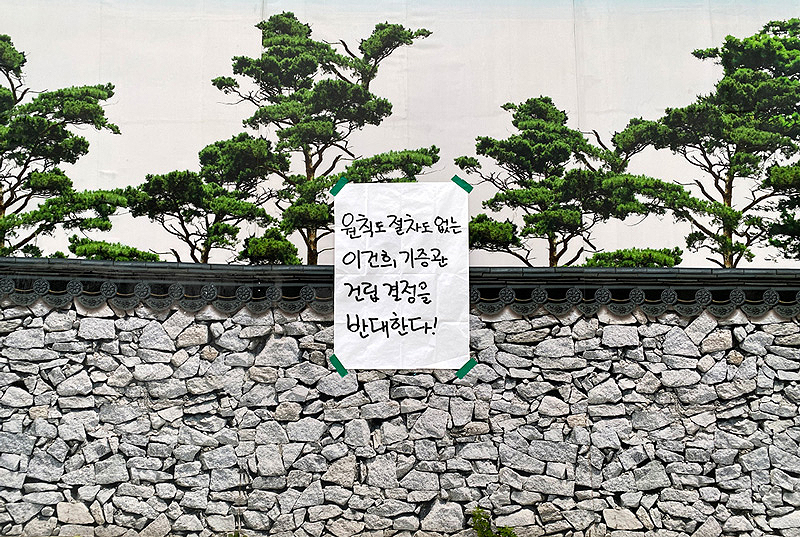 원칙도 절차도 없는
이건희 기증관
건립 결정을
반대한다!